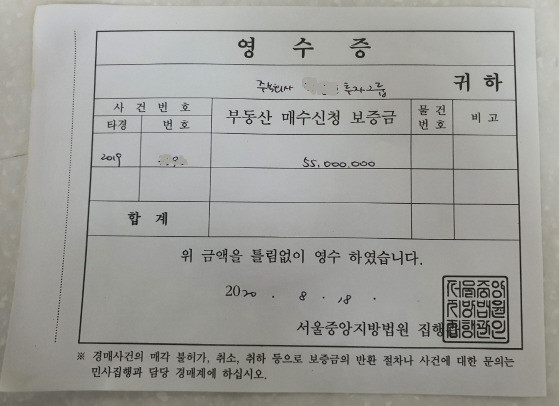 영 수 증
주식회사 투자그룹 귀하
사 건 번 호
타경 번 호 부동산 매수신청 보증금 물건번호 비 고
2019 55,000,000
합 계
위 금액을 틀림없이 영수 하였습니다.
2020 . 8 . 18 .
서울중앙지방법원 집행관
※ 경매사건의 매각 불허가, 취소, 취하 등으로 보증금의 반환 절차나 사건에 대한 문의는
민사집행과 담당 경매계에 하십시오.